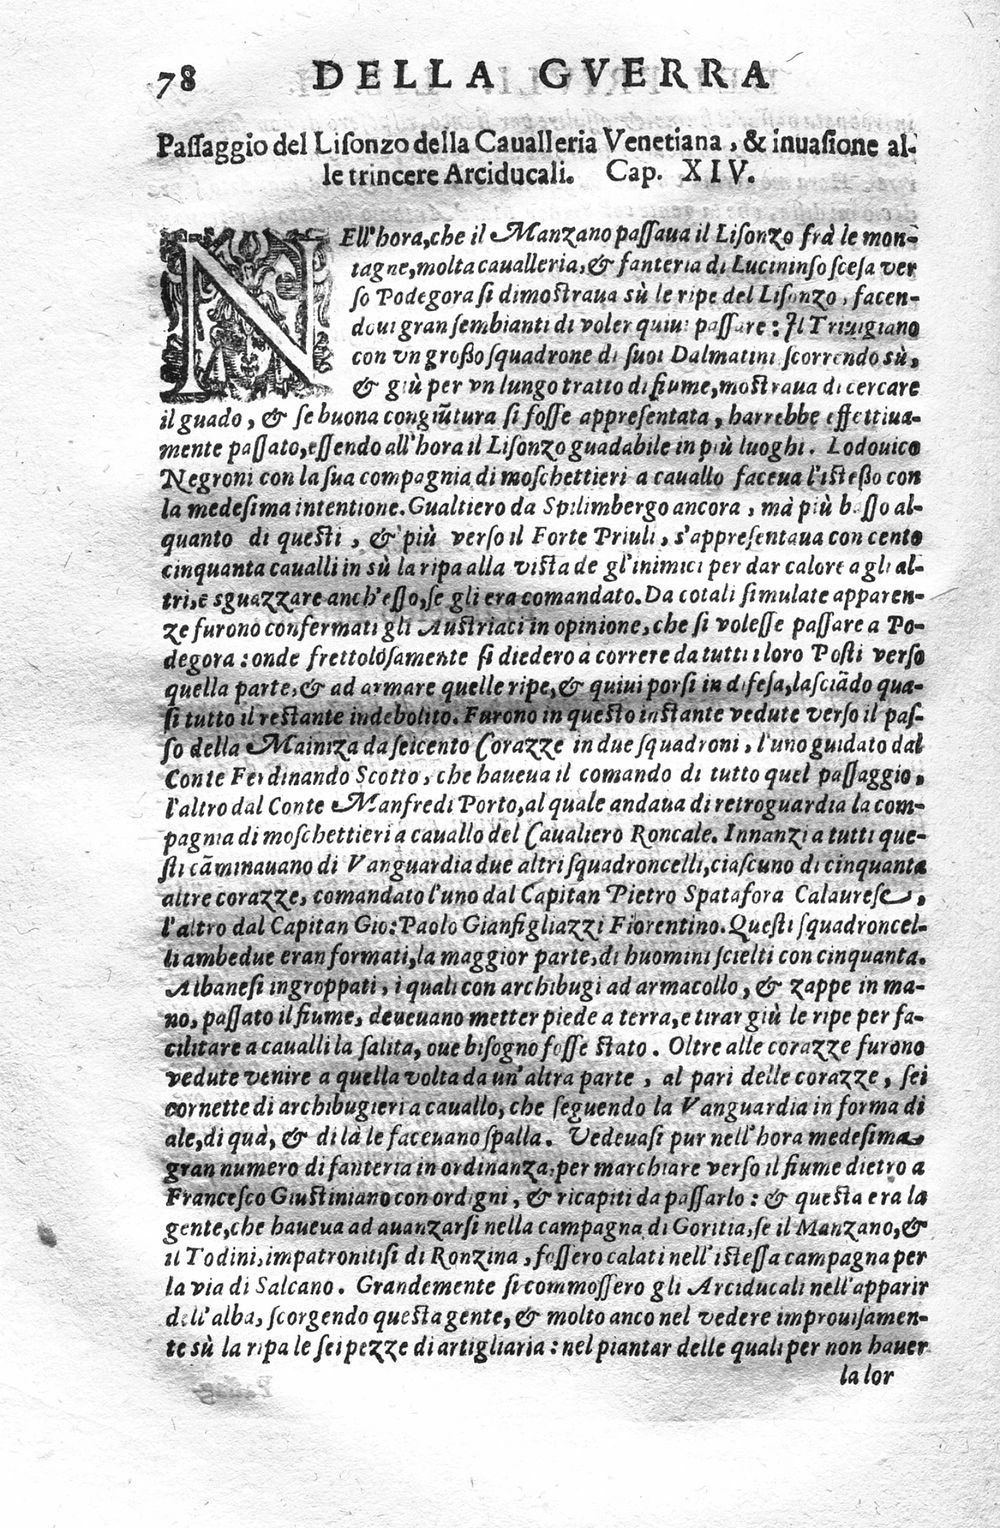 78 DELLA GVERRA
Paſſaggio del Liſonzo della Caualleria Venetiana, & inuaſione al-
le trincere Arciducali. Cap. XIV.
NEll'hora, che il Manzano paſſaua il Liſonzo frà le mon-
tagne, molta caualleria, & fanteria di Lucininſo sceſa ver
ſo Podegora ſi dimoſtraua sù le ripe del Liſonzo, facen-
doui gran ſembianti di voler quiui paſſare: Il Triuigiano
con vn großo ſquadrone di ſuoi Dalmatini ſcorrendo sù,
& giù per vn lungo tratto di fiume, moſtraua di cercare
il guado, & ſe buona congiũtura ſi foſſe appreſentata, harrebbe effettiua-
mente paſſato, eſſendo all'hora il Liſonzo guadabile in più luoghi. Lodouico
Negroni con la ſua compagnia di moſchettieri a cauallo faceua l'iſteßo con
la medeſima intentione. Gualtiero da Spilimbergo ancora, mà più baſſo al-
quanto di queſti, & più verſo il Forte Priuli, s'appreſentaua con cento
cinquanta caualli in sù la ripa alla viſta de gl'inimici per dar calore a gli al-
tri, e sguazzare anch'eſſo, ſe gli era comandato. Da cotali ſimulate apparen-
ze furono confermati gli Auſtriaci in opinione, che ſi voleſſe paſſare a Po-
degora: onde frettoloſamente ſi diedero à correre da tutti i loro Poſti verſo
quella parte, & ad armare quelle ripe, & quiui porſi in difeſa, laſciãdo qua-
ſi tutto il reſtante indebolito. Furono in queſto inſtante vedute verſo il paſ-
ſo della Mainiza da ſeicento Corazze in due ſquadroni, l'uno guidato dal
Conte Ferdinando Scotto, che haueua il comando di tutto quel paſſaggio,
l'altro dal Conte Manfredi Porto, al quale andaua di retroguardia la com-
pagnia di moſchettieri a cauallo del Caualiero Roncale. Innanzi a tutti que-
ſti cãminauano di Vanguardia due altri ſquadroncelli, ciaſcuno di cinquanta
altre corazze, comandato l'uno dal Capitan Pietro Spatafora Calaureſe,
l'altro dal Capitan Gio: Paolo Gianfigliazzi Fiorentino. Queſti ſquadroncel-
li ambedue eran formati, la maggior parte, di huomini ſcielti con cinquanta.
Albaneſi ingroppati, i quali con archibugi ad armacollo, & zappe in ma-
no, paſſato il fiume, deueuano metter piede a terra, e tirar giù le ripe per fa-
cilitare a caualli la ſalita, oue biſogno foſſe ſtato. Oltre alle corazze furono
vedute venire a quella volta da un'altra parte, al pari delle corazze, ſei
cornette di archibugieri a cauallo, che ſeguendo la Vanguardia in forma di
ale, di quà, & di là le faceuano ſpalla. Vedeuaſi pur nell'hora medeſima
gran numero di fanteria in ordinanza, per marchiare verſo il fiume dietro a
Franceſco Giuſtiniano con ordigni, & ricapiti da paſſarlo: & queſta era la
gente, che haueua ad auanzarſi nella campagna di Goritia, ſe il Manzano, &
il Todini, impatronitiſi di Ronzina, foſſero calati nell'iſteſſa campagna per
la via di Salcano. Grandemente ſi commoſſero gli Arciducali nell'apparir
dell'alba, ſcorgendo queſta gente, & molto anco nel vedere improuiſamen-
te sù la ripa le ſei pezze di artigliaria: nel piantar delle quali per non hauer
la lor